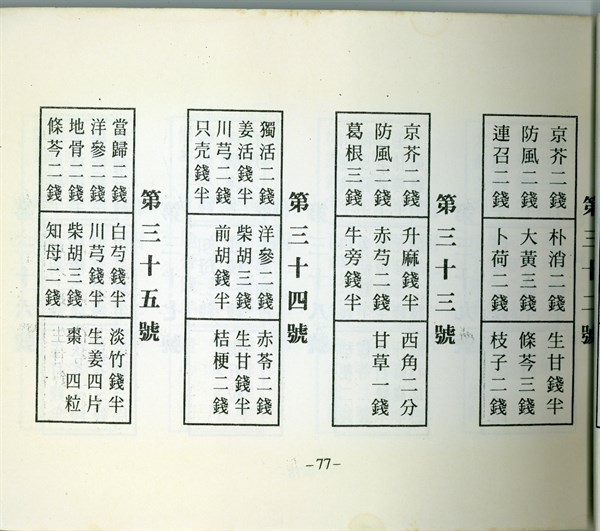 第三十二號
京芥二錢
防風二錢
連召二錢
朴消二錢
大黃三錢
卜荷二錢
生甘錢半
條芩三錢
枝子二錢
第三十三號
京芥二錢
防風二錢
葛根三錢
升麻錢半
赤芍二錢
牛旁錢半
西角二分
甘草一錢
第三十四號
獨活二錢
姜活錢半
川芎二錢
只壳錢半
洋參二錢
柴胡三錢
前胡錢半
赤苓二錢
生甘錢半
桔梗二錢
第三十五號
當歸二錢
洋參二錢
地骨二錢
條芩二錢
白芍錢半
川芎錢半
柴胡三錢
知母二錢
淡竹錢半
生姜四片
棗　四粒
-77-